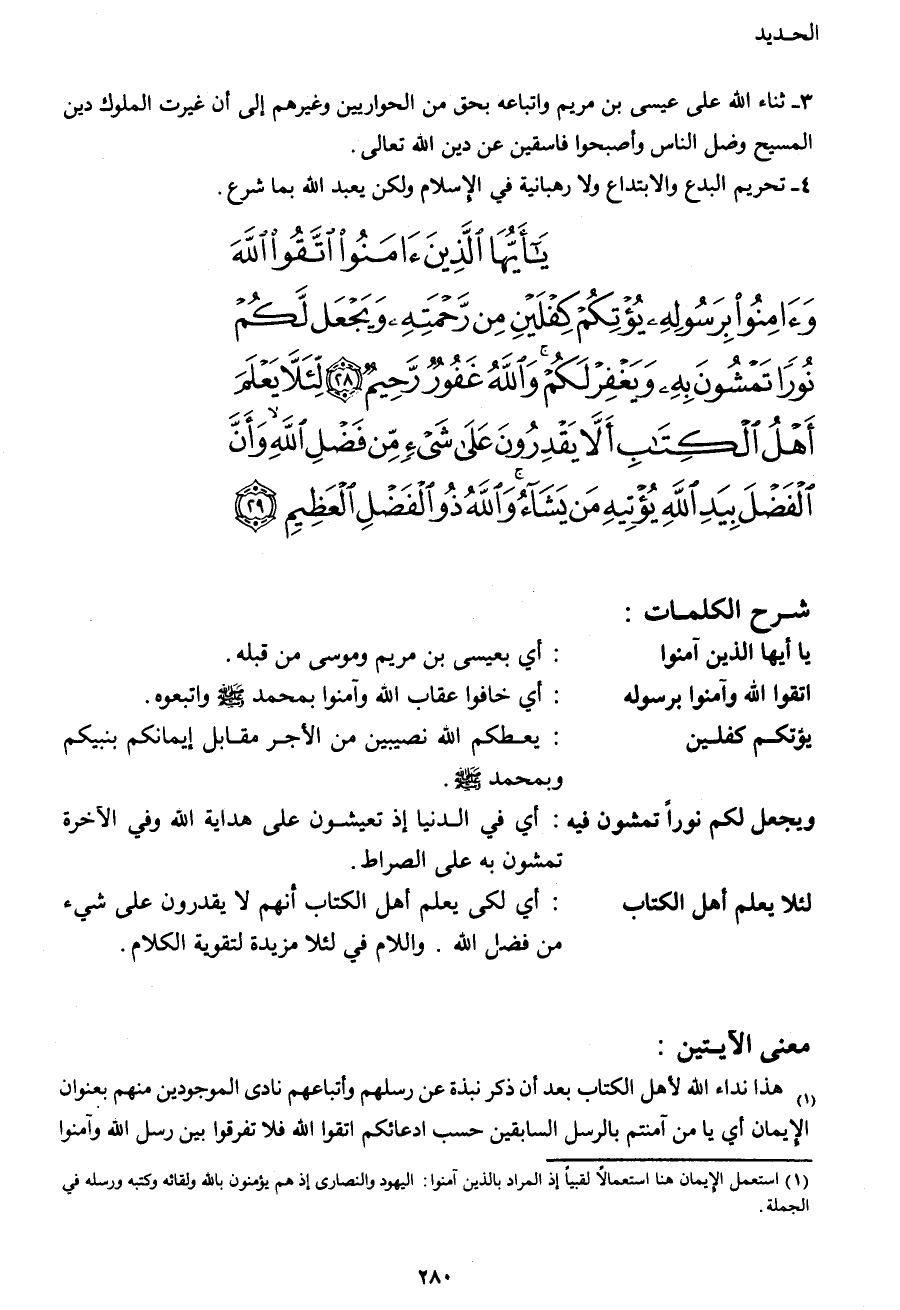 الحـديد
٣ـ ثناء الله على عيسى بن مريم واتباعه بحق من الحواريين وغيرهم إلى أن غيرت الملوك دين
المسيح وضل الناس وأصبحوا فاسقين عن دين الله تعالى .
٤ـ تحريم البدع والابتداع ولا رهبانية في الإسلام ولكن يعبد الله بما شرع .
يَٰٓأَيُّهَا ٱلَّذِينَ ءَامَنُوا۟ ٱتَّقُوا۟ ٱللَّهَ
وَءَامِنُوا۟ بِرَسُولِهِۦ يُؤْتِكُمْ كِفْلَيْنِ مِن رَّحْمَتِهِۦ وَيَجْعَل لَّكُمْ
نُورًا تَمْشُونَ بِهِۦ وَيَغْفِرْ لَكُمْ ۚ وَٱللَّهُ غَفُورٌ رَّحِيمٌ ﴿٢٨﴾ لِّئَلَّا يَعْلَمَ
أَهْلُ ٱلْكِتَٰبِ أَلَّا يَقْدِرُونَ عَلَىٰ شَىْءٍ مِّن فَضْلِ ٱللَّهِ ۙ وَأَنَّ
ٱلْفَضْلَ بِيَدِ ٱللَّهِ يُؤْتِيهِ مَن يَشَآءُ ۚ وَٱللَّهُ ذُو ٱلْفَضْلِ ٱلْعَظِيمِ ﴿٢٩﴾
شـرح الكلمـات :
يا أيها الذين آمنوا : أي بعيسى بن مريم وموسى من قبله .
اتقوا الله وآمنوا برسوله : أي خافوا عقاب الله وآمنوا بمحمد ﷺ واتبعوه .
يؤتكـم كفلـين : يعـطكم الله نصيبين من الأجـر مقـابل إيمانكم بنبيكم
وبمحمد ﷺ .
ويجعل لكم نوراً تمشون فيه : أي في الـدنيا إذ تعيشـون على هداية الله وفي الآخرة
تمشون به على الصراط .
لئلا يعلم أهل الكتاب : أي لكى يعلم أهل الكتاب أنهم لا يقدرون على شيء
من فضل الله . واللام في لئلا مزيدة لتقوية الكلام .
معنى الآيـتين :
هذا نداء الله لأهل الكتاب بعد أن ذكر نبذة عن رسلهم وأتباعهم نادى الموجودين منهم بعنوان
(١) الإيمان أي يا من آمنتم بالرسل السابقين حسب ادعائكم اتقوا الله فلا تفرقوا بين رسل الله وآمنوا
(١) استعمل الإيمان هنا استعمالاً لقبياً إذ المراد بالذين آمنوا : اليهود والنصارى إذ هم يؤمنون بالله ولقائه وكتبه ورسله في
الجملة .
٢٨٠